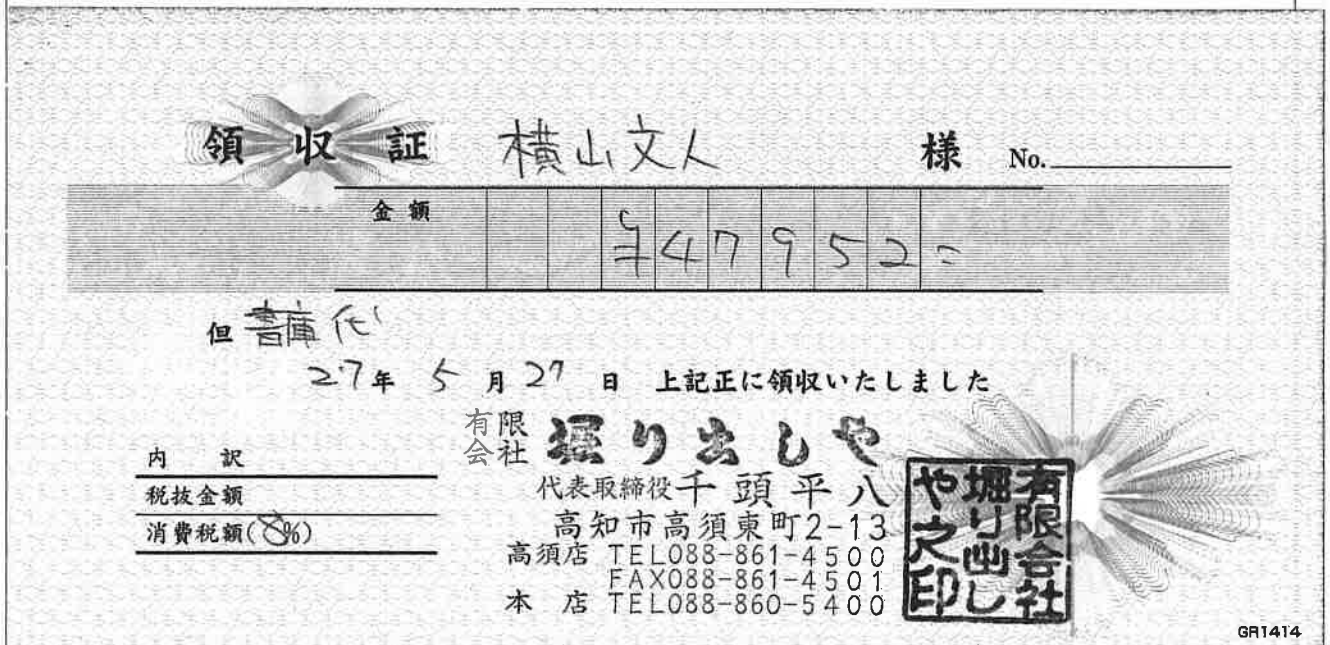 領収証 横山文人 様 No.
金額 ¥47952=
但 書庫代
27年 5月 27日 上記正に領収いたしました
有限会社 堀り出しや
代表取締役 千頭平八
高知市高須東町2-13
高須店 TEL088-861-4500
FAX088-861-4501
本店 TEL088-860-5400
内訳
税抜金額
消費税額(8%)
有限会社堀り出しや之印
GR1414